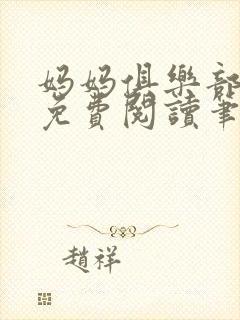 妈妈俱樂部
免費閱讀筆
趙祥